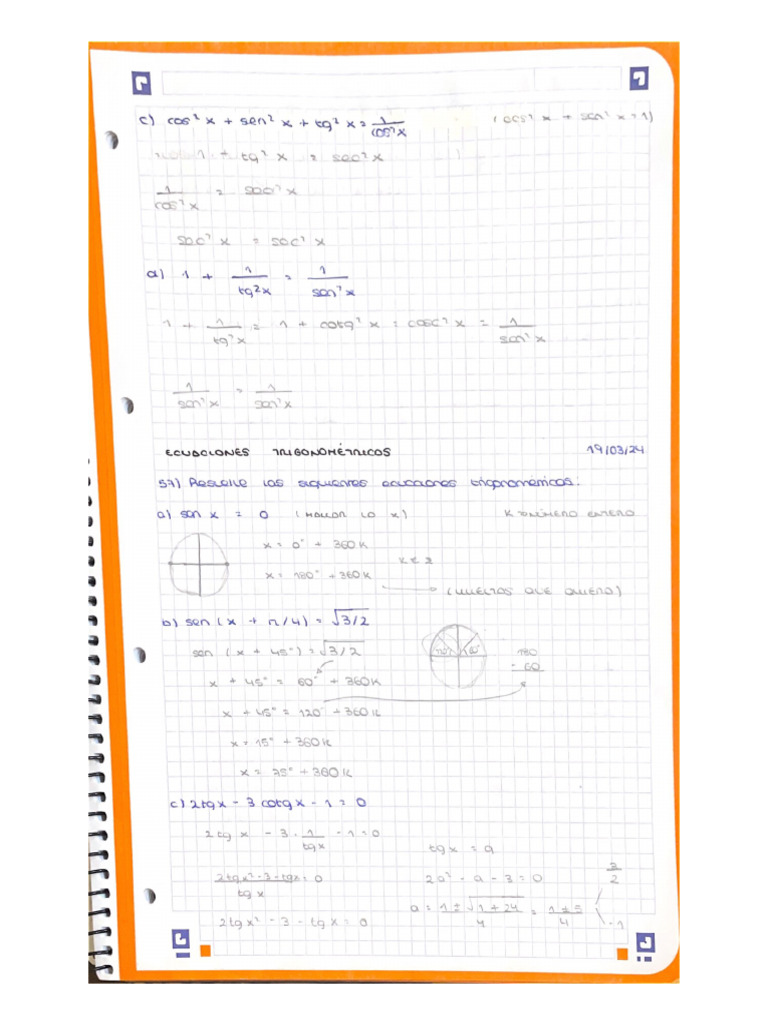 c) cos² x + sen² x + tg² x = 1/cos² x (cos² x + sen² x = 1)
1 + tg² x = sec² x
1/cos² x = sec² x
sec² x = sec² x
d) 1 + 1/tg²x = 1/sen² x
1 + 1/tg² x = 1 + cotg² x = cosc² x = 1/sen² x
1/sen² x = 1/sen² x
ECUACIONES TRIGONOMÉTRICAS 19/03/24
57) Resuelve las siguientes ecuaciones trigonométricas:
a) sen x = 0 (HALLAR LA x) K = NÚMERO ENTERO
x = 0° + 360K
x = 180° + 360K K ∈ Z
(VUELTAS QUE QUIERO)
b) sen (x + π/4) = √3/2
sen (x + 45°) = √3/2
x + 45° = 60° + 360K
180
- 60
x + 45° = 120° + 360K
x = 15° + 360K
x = 75° + 360K
c) 2tgx - 3 cotgx - 1 = 0
2 tg x - 3 · 1/tgx - 1 = 0 tg x = a
2tgx² - 3 - tgx/tg x = 0 2a² - a - 3 = 0
2tgx² - 3 - tg x = 0 a = 1 ± √1 + 24/4 = 1 ± 5/4
3/2
-1